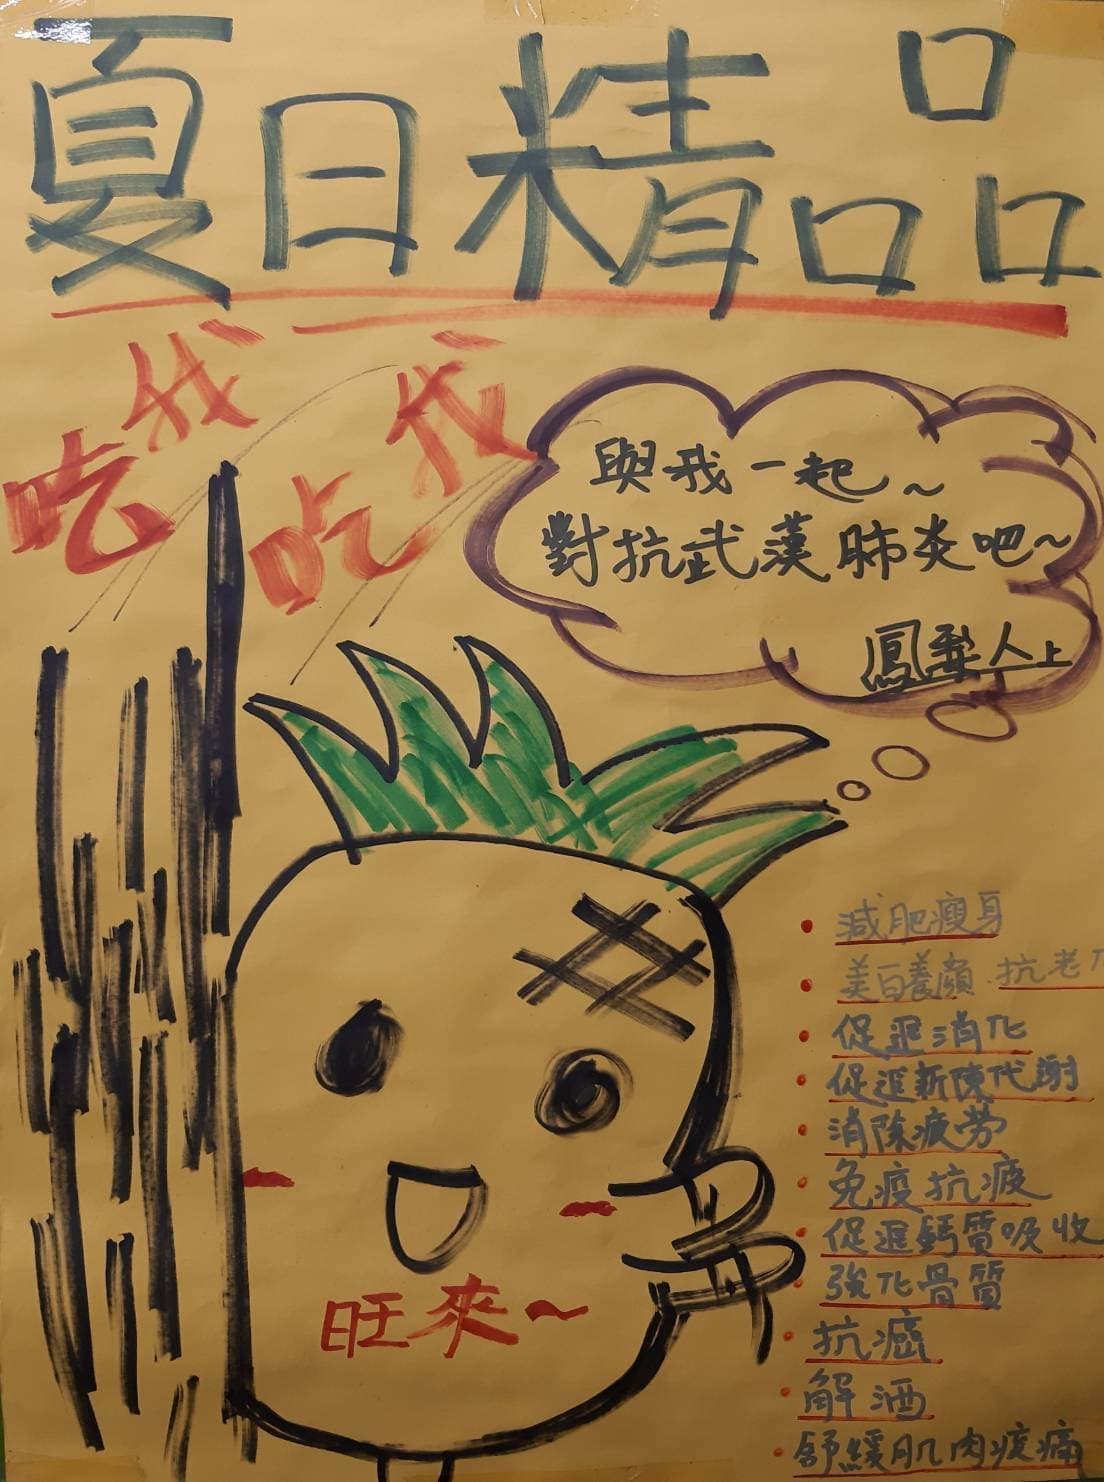 夏日精品
吃我 吃我
與我一起~
對抗武漢肺炎吧~
鳳梨人上
減肥瘦身
美白養顏 抗老化
促進消化
促進新陳代謝
消除疲劳
免疫抗疲
促進鈣質吸收
強化骨質
抗癌
解酒
舒緩肌肉疲痛
旺來~